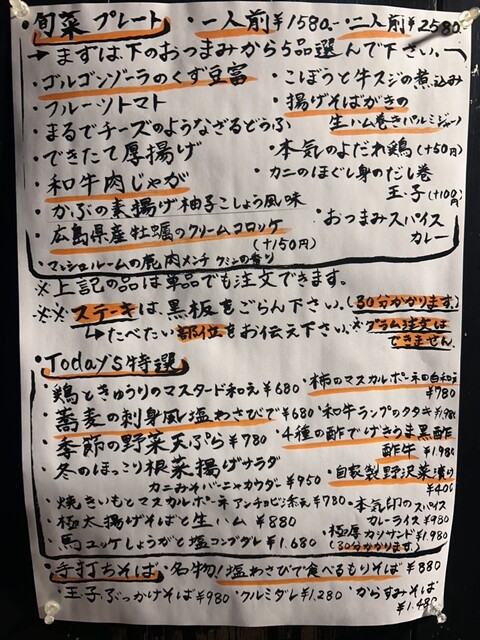 ・旬菜プレート ・一人前¥1580.-・二人前¥2580.
→まずは、下のおつまみから5品選んで下さい。
・ゴルゴンゾーラのくず豆富
・フルーツトマト
・まるでチーズのようなざるどうふ
・できたて厚揚げ
・和牛肉じゃが
・かぶの素揚げ柚子こしょう風味
・広島県産牡蠣のクリームコロッケ
(+150円)
・マッシュルームの鹿肉メンチ クミンの香り
・ごぼうと牛スジの煮込み
・揚げそばがきの
生ハム巻きパルミジャーノ
・本気のよだれ鶏(+50円)
・カニのほぐし身のだし巻
玉子(+100円)
・おつまみスパイス
カレー
※上記の品は単品でも注文できます。
※※ステーキは、黒板をごらん下さい。(30分かかります。)
↳たべたい部位をお伝え下さい。※グラム注文は
できません。
・Today's特選
・鶏ときゅうりのマスタード和え¥680
・蕎麦の刺身風塩わさびで¥680
・季節の野菜天ぷら¥780
・冬のほっこり根菜揚げサラダ
カニみそバーニャカウダー¥950
・焼きいもとマスカルポーネ アンチョビ添え¥780
・極太揚げそばと生ハム¥880
・馬ユッケしょうがと塩コンブダレ¥1.680
・柿のマスカルポーネの白和え
¥780
・和牛ランプのタタキ¥1.980
・4種の酢でげきうま黒酢
酢牛¥1.980
・自家製野沢菜漬け
¥400
・本気印のスパイス
カレーライス¥980
・極厚カツサンド¥1.980
(30分かかります)
・手打ちそば ・名物!塩わさびで食べるもりそば¥880
・玉子ぶっかけそば¥980 ・クルミダレ¥1.280 ・からすみそば
¥1.480